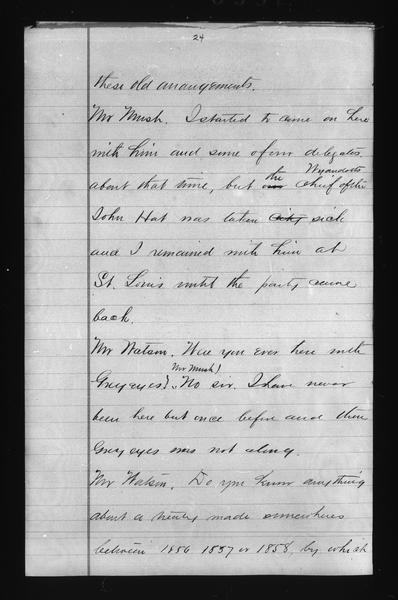 24
these old arrangements.
Mr Mush. I started to come on here
with him and some of our delegates
about that time, but our the chief of the Wyandotts
John Hat was taken sick
and I remained with him at
St. Louis until the party came
back.
Mr Watson. Were you ever here with
Greyeyes? Mr Mush! No sir. I have never
been here but once before and then
Grey eyes was not along.
Mr Watson. Do you know anything
about a treaty made somewheres
between 1856 1857 or 1858, by which